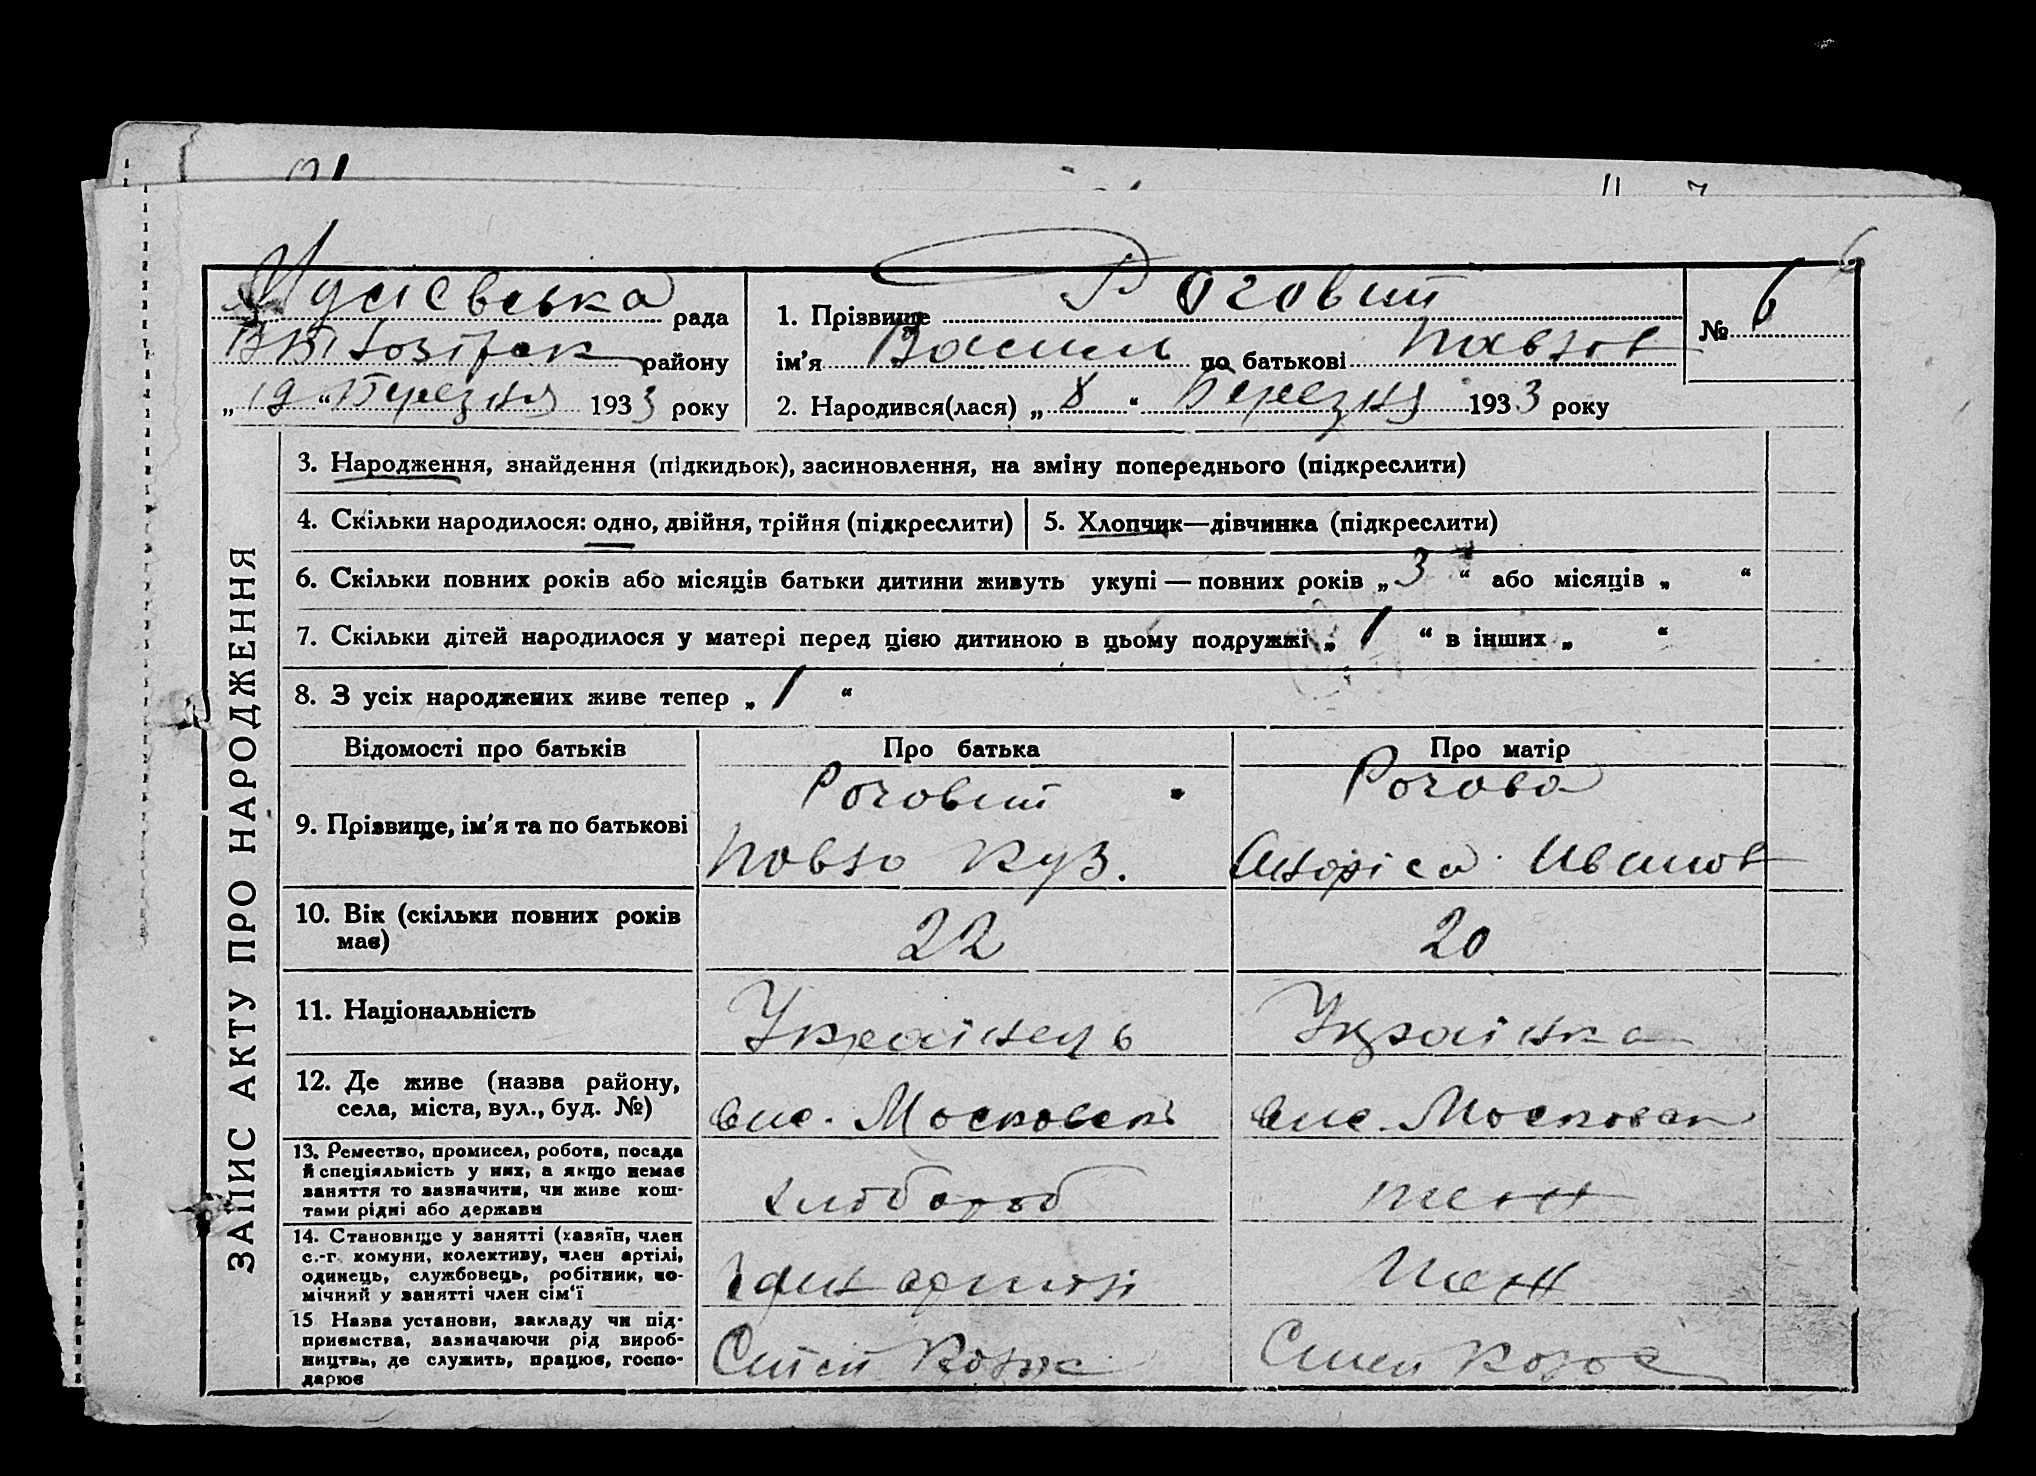 6
рада
1. Прізвище Роговий
№ 6
району
ім'я Василь по батькові Павлов
„ 19 “ Березня 1933 року
2. Народився(лася) „ 8 “ Березня 1933 року
ЗАПИС АКТУ ПРО НАРОДЖЕННЯ
3. Народження, знайдення (підкидьок), засиновлення, на зміну попереднього (підкреслити)
4. Скільки народилося: одно, двійня, трійня (підкреслити)
5. Хлопчик—дівчинка (підкреслити)
6. Скільки повних років або місяців батьки дитини живуть укупі — повних років „ 3 “ або місяців „ “
7. Скільки дітей народилося у матері перед цією дитиною в цьому подружжі „ 1 “ в інших „ “
8. З усіх народжених живе тепер „ 1 “
Відомості про батьків
Про батька
Про матір
9. Прізвище, ім'я та по батькові
Роговий
Павло Куз.
Рогова
Иванов
10. Вік (скільки повних років
має)
22
20
11. Національність
Українець
Українка
12. Де живе (назва району,
села, міста, вул., буд. №)
вис. Московськ
вис. Московськ
13. Ремество, промисел, робота, посада
й спеціяльність у них, а якщо немає
заняття то зазначити, чи живе кош-
тами рідні або держави
хлібороб
теж
14. Становище у занятті (хазяїн, член
с.-г. комуни, колективу, член артілі,
одинець, службовець, робітник, по-
мічний у занятті член сім'ї
член артілі
теж
15 Назва установи, закладу чи під-
приємства, зазначаючи рід вироб-
ництва, де служить, працює, госпо-
дарює